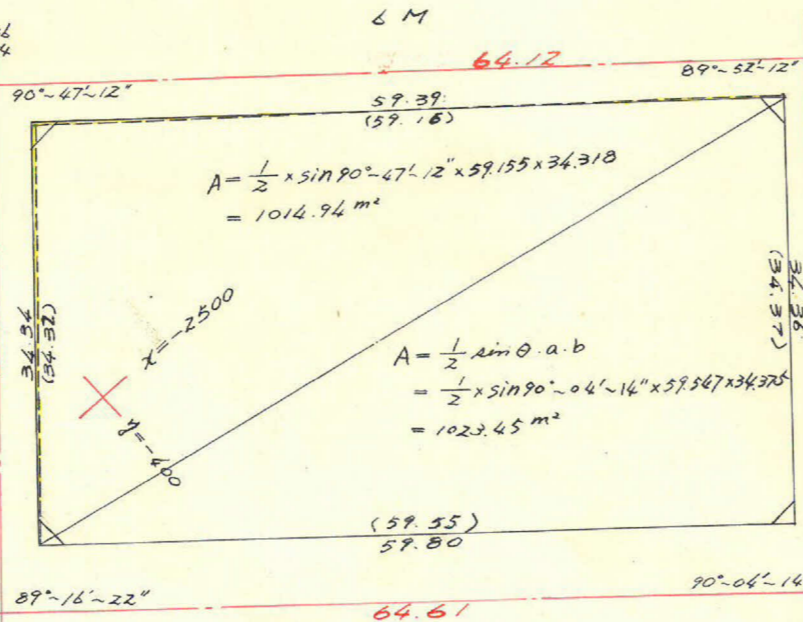 6 M
64.12
90°~47'~12"
89°~52'~12"
59.39
(59.16)
A = 1/2 × sin 90°~47'~12" × 59.155 × 34.318
= 1014.94 m²
34.34
(34.32)
x = -2500
y = -400
34.36
(34.37)
A = 1/2 sin θ . a . b
= 1/2 × sin 90°~04'~14" × 59.547 × 34.375
= 1023.45 m²
(59.55)
59.80
89°~16'~22"
90°~04'~14
64.61